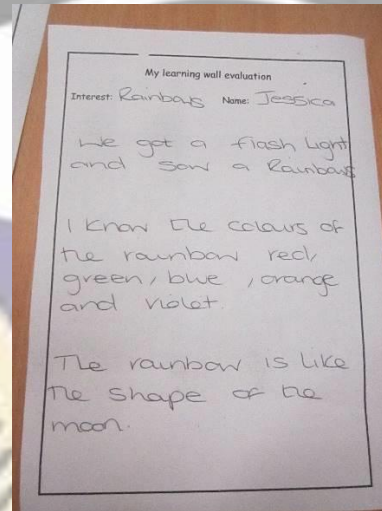 My learning wall evaluation
Interest: Rainbows Name: Jessica
We got a flash Light
and saw a Rainbows
I know the colours of
the rainbow red,
green, blue , orange
and violet.
The rainbow is like
the shape of the
moon.